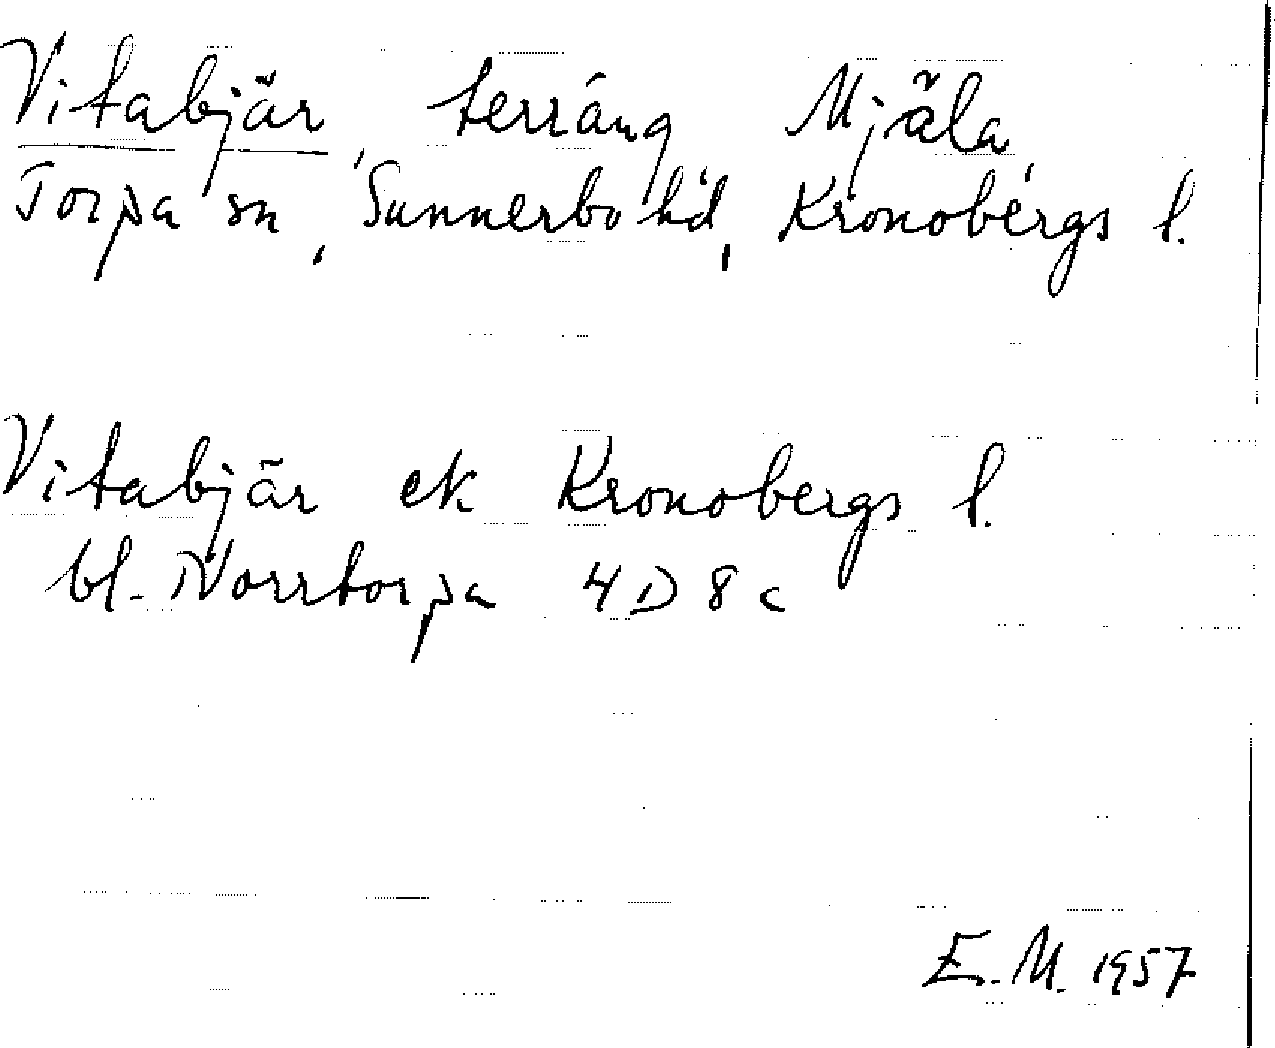 Vitabjär, terräng Mjäla,
Torpa sn, Sunnerbo hd, Kronobergs l.
Vitabjär ek Kronobergs l.
bl. Norrtorpa 4D8c
E.M. 1957